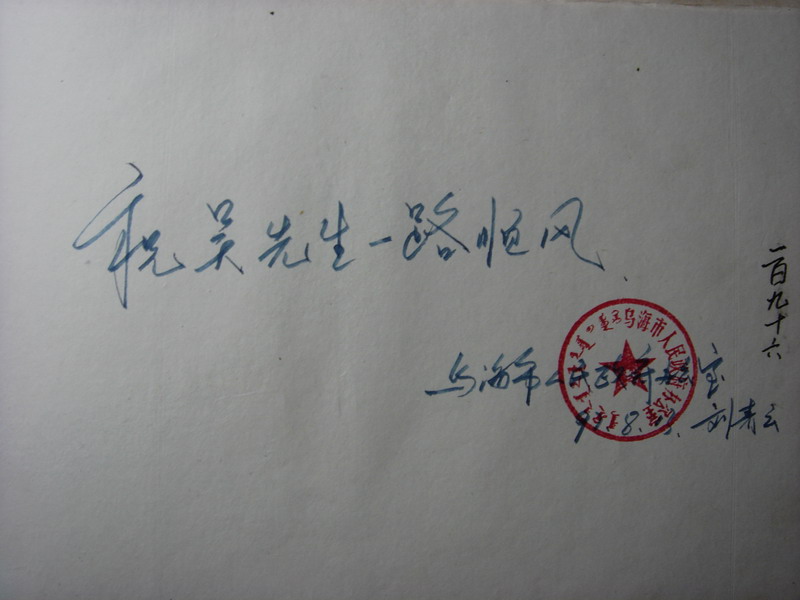 祝吴先生一路恒风
乌海市人民政府办公室
刘青云
乌海市人民政府办公室
一百九十六